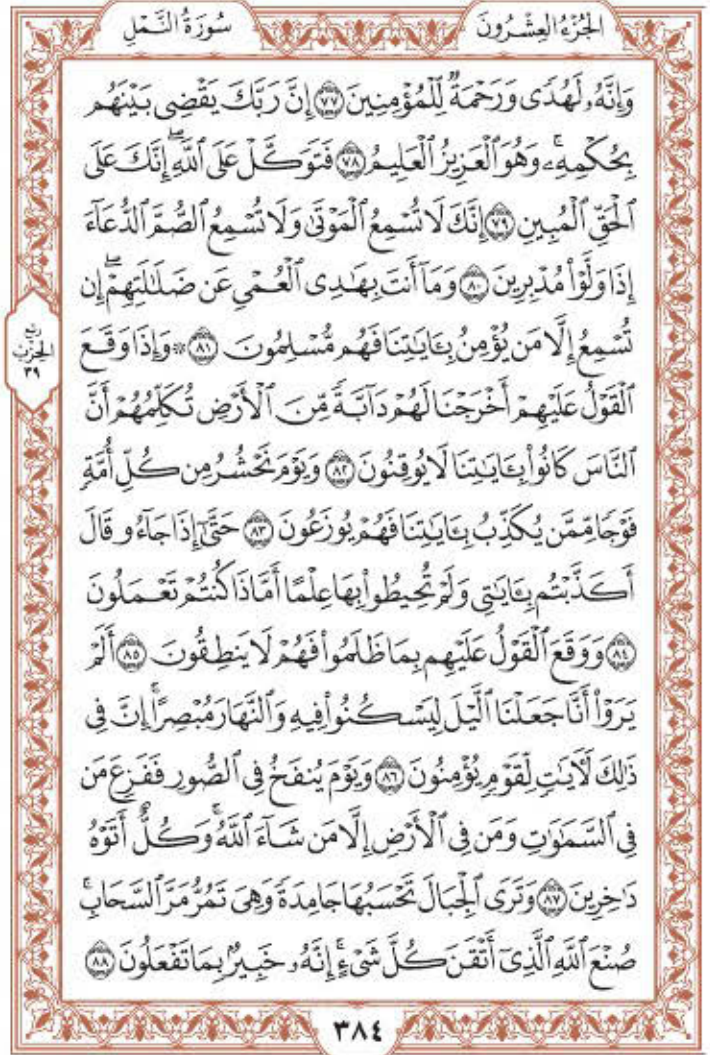 الجُزْءُ العِشْرُونَ سُورَةُ النَّمْلِ
وَإِنَّهُۥ لَهُدًى وَرَحْمَةٌ لِّلْمُؤْمِنِينَ ٧٧ إِنَّ رَبَّكَ يَقْضِى بَيْنَهُم
بِحُكْمِهِۦۚ وَهُوَ ٱلْعَزِيزُ ٱلْعَلِيمُ ٧٨ فَتَوَكَّلْ عَلَى ٱللَّهِۖ إِنَّكَ عَلَى
ٱلْحَقِّ ٱلْمُبِينِ ٧٩ إِنَّكَ لَا تُسْمِعُ ٱلْمَوْتَىٰ وَلَا تُسْمِعُ ٱلصُّمَّ ٱلدُّعَآءَ
إِذَا وَلَّوْا۟ مُدْبِرِينَ ٨٠ وَمَآ أَنتَ بِهَٰدِى ٱلْعُمْىِ عَن ضَلَٰلَتِهِمْۖ إِن
تُسْمِعُ إِلَّا مَن يُؤْمِنُ بِـَٔايَٰتِنَا فَهُم مُّسْلِمُونَ ٨١ ۞ وَإِذَا وَقَعَ
ٱلْقَوْلُ عَلَيْهِمْ أَخْرَجْنَا لَهُمْ دَآبَّةً مِّنَ ٱلْأَرْضِ تُكَلِّمُهُمْ أَنَّ
ٱلنَّاسَ كَانُوا۟ بِـَٔايَٰتِنَا لَا يُوقِنُونَ ٨٢ وَيَوْمَ نَحْشُرُ مِن كُلِّ أُمَّةٍ
فَوْجًا مِّمَّن يُكَذِّبُ بِـَٔايَٰتِنَا فَهُمْ يُوزَعُونَ ٨٣ حَتَّىٰٓ إِذَا جَآءُو قَالَ
أَكَذَّبْتُم بِـَٔايَٰتِى وَلَمْ تُحِيطُوا۟ بِهَا عِلْمًا أَمَّاذَا كُنتُمْ تَعْمَلُونَ
٨٤ وَوَقَعَ ٱلْقَوْلُ عَلَيْهِم بِمَا ظَلَمُوا۟ فَهُمْ لَا يَنطِقُونَ ٨٥ أَلَمْ
يَرَوْا۟ أَنَّا جَعَلْنَا ٱلَّيْلَ لِيَسْكُنُوا۟ فِيهِ وَٱلنَّهَارَ مُبْصِرًاۚ إِنَّ فِى
ذَٰلِكَ لَـَٔايَٰتٍ لِّقَوْمٍ يُؤْمِنُونَ ٨٦ وَيَوْمَ يُنفَخُ فِى ٱلصُّورِ فَفَزِعَ مَن
فِى ٱلسَّمَٰوَٰتِ وَمَن فِى ٱلْأَرْضِ إِلَّا مَن شَآءَ ٱللَّهُۚ وَكُلٌّ أَتَوْهُ
دَٰخِرِينَ ٨٧ وَتَرَى ٱلْجِبَالَ تَحْسَبُهَا جَامِدَةً وَهِىَ تَمُرُّ مَرَّ ٱلسَّحَابِۚ
صُنْعَ ٱللَّهِ ٱلَّذِىٓ أَتْقَنَ كُلَّ شَىْءٍۚ إِنَّهُۥ خَبِيرٌۢ بِمَا تَفْعَلُونَ ٨٨
ربع
الحزب
٣٩
٣٨٤